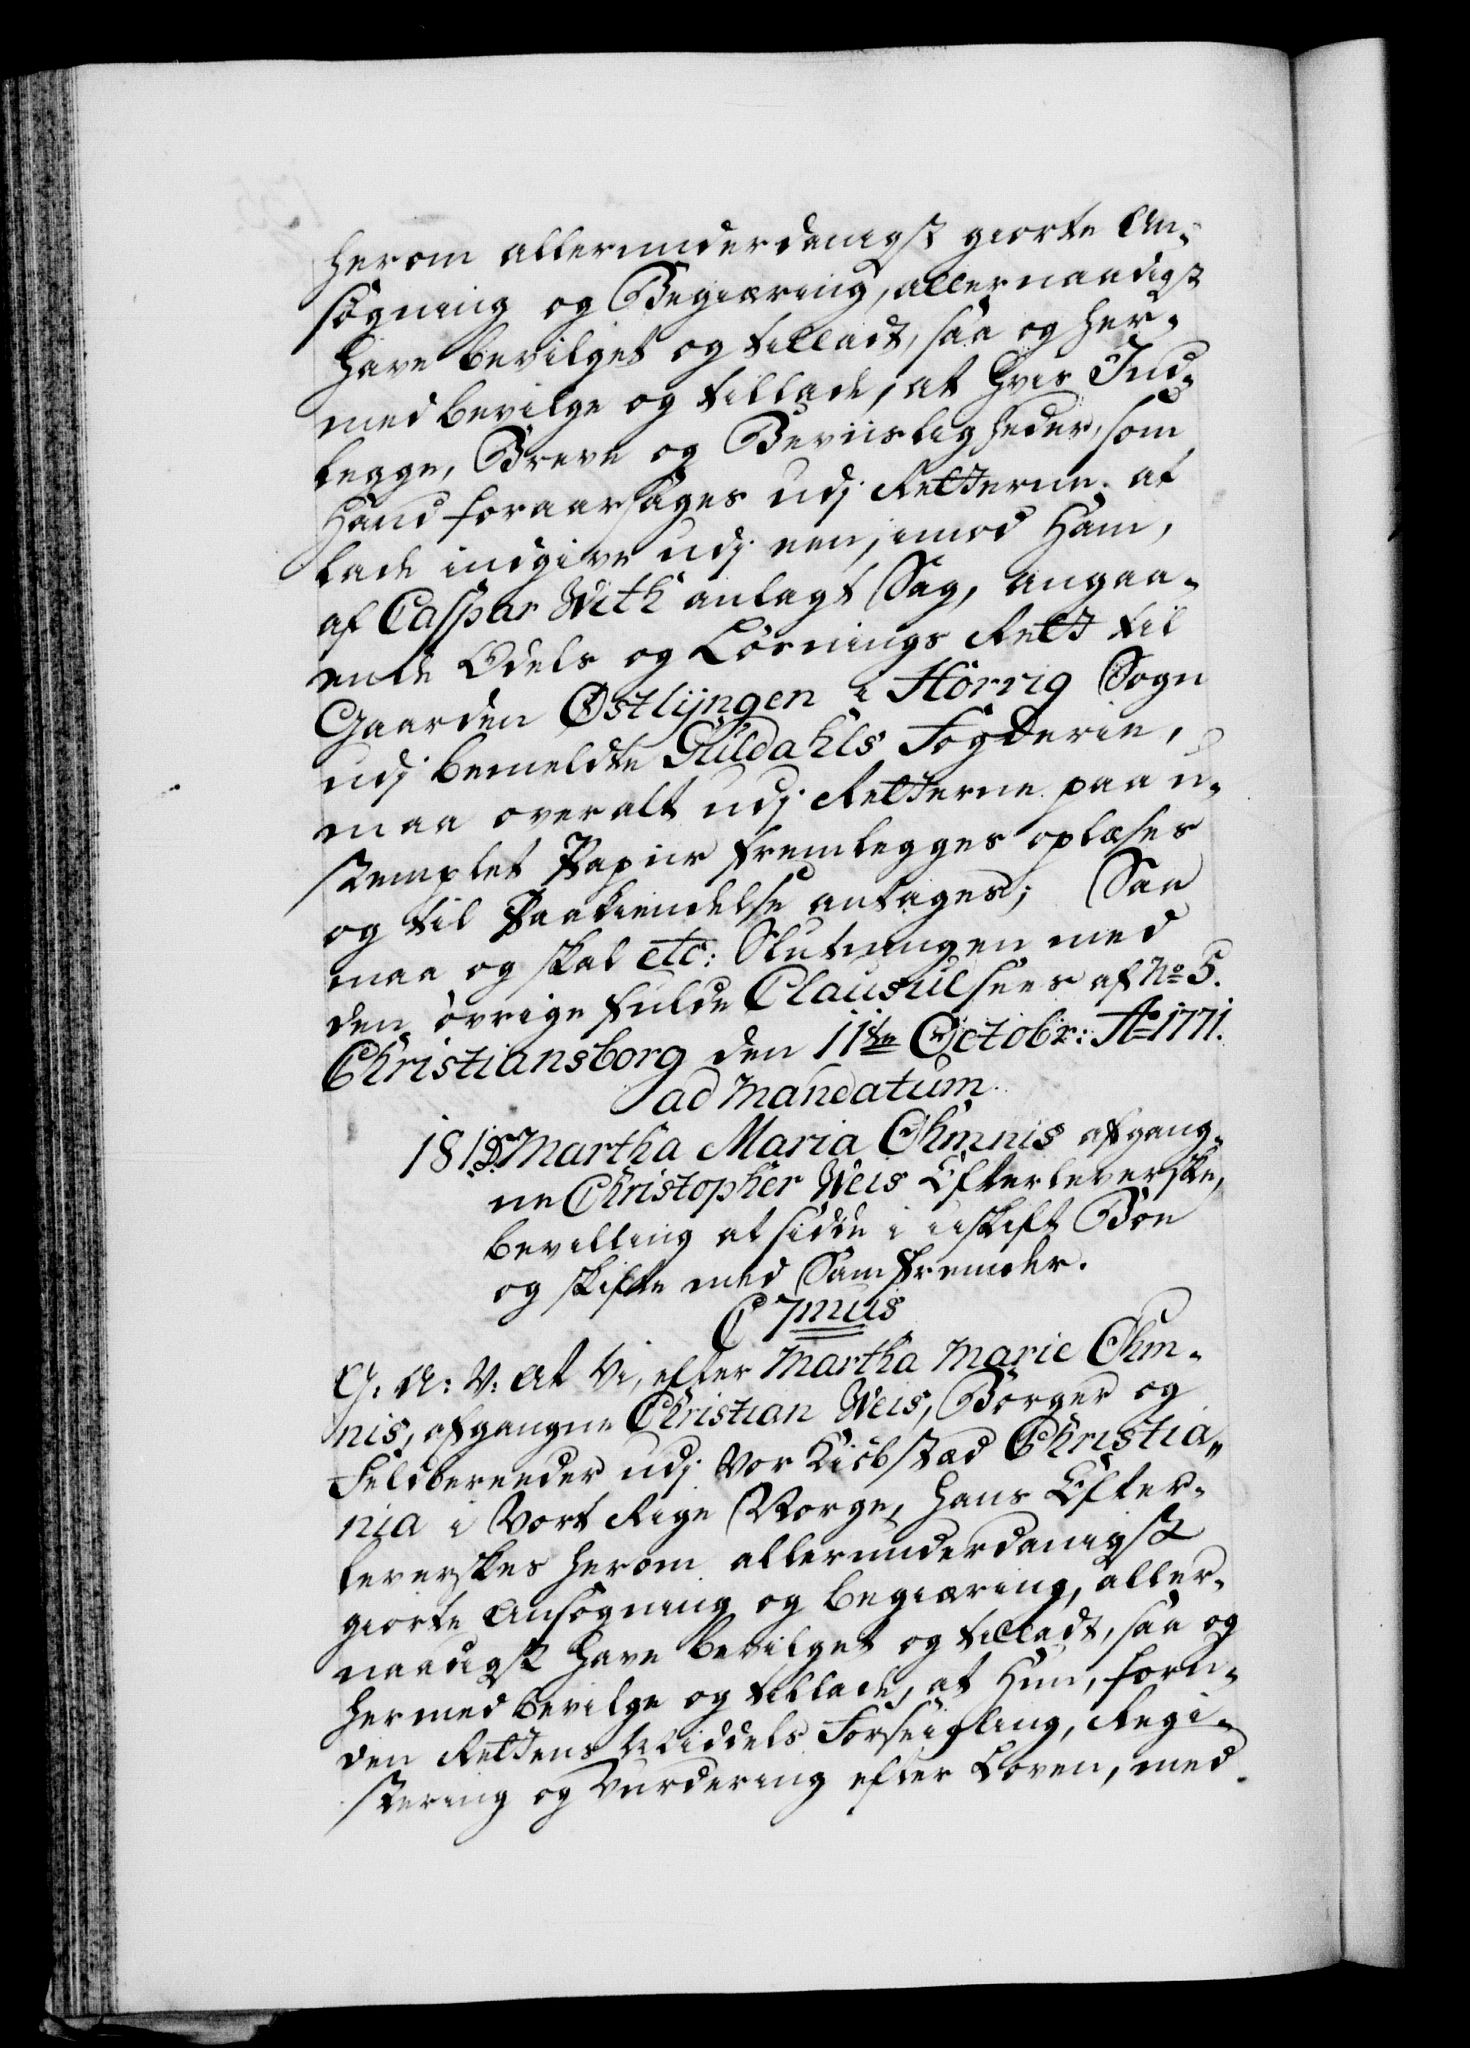 herom allerunderdanigst giorte An-
søgning og Begiæring, allernaadigst
have bevilget og tilladt, saa og her-
med bevilge og tillade, at hvis Ind-
legge, Breve og Beviisligheder, som
Hand foraarsages udj Retterne at
lade indgive udj een, imod Ham,
af Caspar With anlagt Sag, angaa-
ende Odels og Løsnings Rett til
Gaarden Østlyngen i Hörrig Sogn
udj bemeldte Guldahls Fogderie,
maa overalt udj Retterne paa u-
stemplet Papiir fremlegges oplæses
og til Paakiendelse antages; Saa
maa og skal etc: Slutningen med
den øvrige fulde Clausul sees af No 5.
Christiansborg den 11te Octobr: Ao 1771.
ad Mandatum
181. Martha Maria Ohmnis afgang-
ne Christopher Weis Efterleverske,
bevilling at sidde i uskift Boe
og skifte med Samfrender.
C 7mus
G: A: V: At Vi, efter Martha Marie Ohm-
nis, afgangne Christian Weis, Borger og
Feldbereder udj Vor Kiøbstæd Christia-
nia i Vort Rige Norge, hans Efter-
leverskes herom allerunderdanigst
giorte Ansøgning og begiæring, aller-
naadigst have bevilget og tilladt, saa og
hermed bevilge og tillade, at Hun, foru-
den Rettens Middels Forseigling, Regi-
stering og Vurdering efter Loven, med